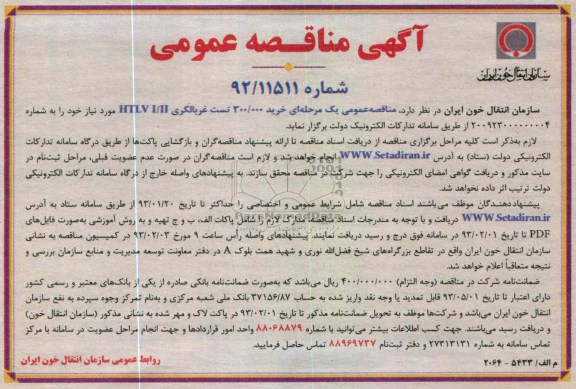 سازمان انتقال خون ایران
آگهی مناقصه عمومی
شماره ۹۲/۱۱۵۱۱
سازمان انتقال خون ایران در نظر دارد، مناقصه‌عمومی یک مرحله‌ای خرید ۳۰۰/۰۰۰ تست غربالگری HTLV I/II مورد نیاز خود را به شماره
۲۰۰۹۲۳۰۰۰۰۰۰۰۰۴ از طریق سامانه تدارکات الکترونیک دولت برگزار نماید.
لازم به‌ذکر است کلیه مراحل برگزاری مناقصه از دریافت اسناد مناقصه تا ارائه پیشنهاد مناقصه‌گران و بازگشایی پاکت‌ها از طریق درگاه سامانه تدارکات
الکترونیکی دولت (ستاد) به آدرس WWW.Setadiran.ir انجام خواهد شد و لازم است مناقصه‌گران در صورت عدم عضویت قبلی، مراحل ثبت‌نام در
سایت مذکور و دریافت گواهی امضای الکترونیکی را جهت شرکت در مناقصه محقق سازند. به پیشنهادهای واصله خارج از درگاه سامانه تدارکات الکترونیکی
دولت ترتیب اثر داده نخواهد شد.
پیشنهاددهندگان موظف می‌باشند اسناد مناقصه شامل شرایط عمومی و اختصاصی را حداکثر تا تاریخ ۹۳/۰۱/۲۰ از طریق سامانه ستاد به آدرس
WWW.Setadiran.ir دریافت و با توجه به مندرجات اسناد مناقصه، مدارک لازم را شامل پاکات الف، ب و ج تهیه و به روش آموزشی به‌صورت فایل‌های
PDF تا تاریخ ۹۳/۰۲/۰۱ در سامانه فوق درج و رسید دریافت نمایند. پیشنهادهای واصله رأس ساعت ۹ مورخ ۹۳/۰۲/۰۳ در کمیسیون مناقصه به نشانی
سازمان انتقال خون ایران واقع در تقاطع بزرگراه‌های شیخ فضل‌الله نوری و شهید همت بلوک A در دفتر معاونت توسعه مدیریت و منابع سازمان بررسی و
نتیجه متعاقباً اعلام خواهد شد.
ضمانت‌نامه شرکت در مناقصه (وجه التزام) ۴۰۰/۰۰۰/۰۰۰ ریال می‌باشد که به‌صورت ضمانت‌نامه بانکی صادره از یکی از بانک‌های معتبر و رسمی کشور
دارای اعتبار تا تاریخ ۹۳/۰۵/۰۱ قابل تمدید یا وجه نقد واریز شده به حساب ۳۷۱۵۶/۸۷ بانک ملی شعبه مرکزی و به‌نام تمرکز وجوه سپرده به نفع سازمان
انتقال خون ایران می‌باشد و شرکت‌ها موظف به تحویل ضمانت‌نامه مذکور تا تاریخ ۹۳/۰۲/۰۱ در پاکت لاک و مهر شده به نشانی مذکور (سازمان انتقال خون)
و دریافت رسید می‌باشند. جهت کسب اطلاعات بیشتر می‌توانید با شماره ۸۸۰۶۸۸۷۹ واحد امور قراردادها و جهت انجام مراحل عضویت در سامانه با مرکز
تماس سامانه به شماره ۲۷۳۱۳۱۳۱ و دفتر ثبت‌نام ۸۸۹۶۹۷۳۷ تماس حاصل فرمایید.
م الف/ ۵۴۳۳ - ۲۰۶۴
روابط عمومی سازمان انتقال خون ایران